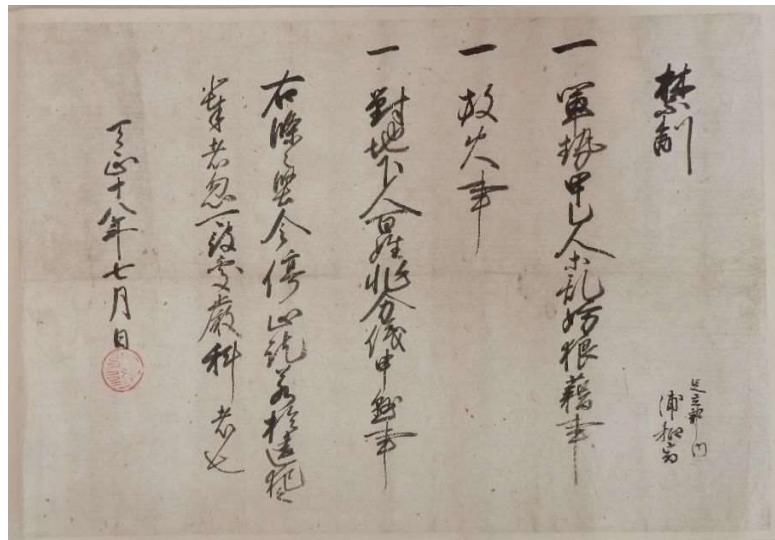 禁制
足立郡内
浦和宿
一 軍勢甲乙人等乱妨狼藉事
一 放火事
一 對地下人百姓非分儀申懸事
右條々堅令停止訖若於違犯之
輩者忽可被處嚴科者也
天正十八年七月日